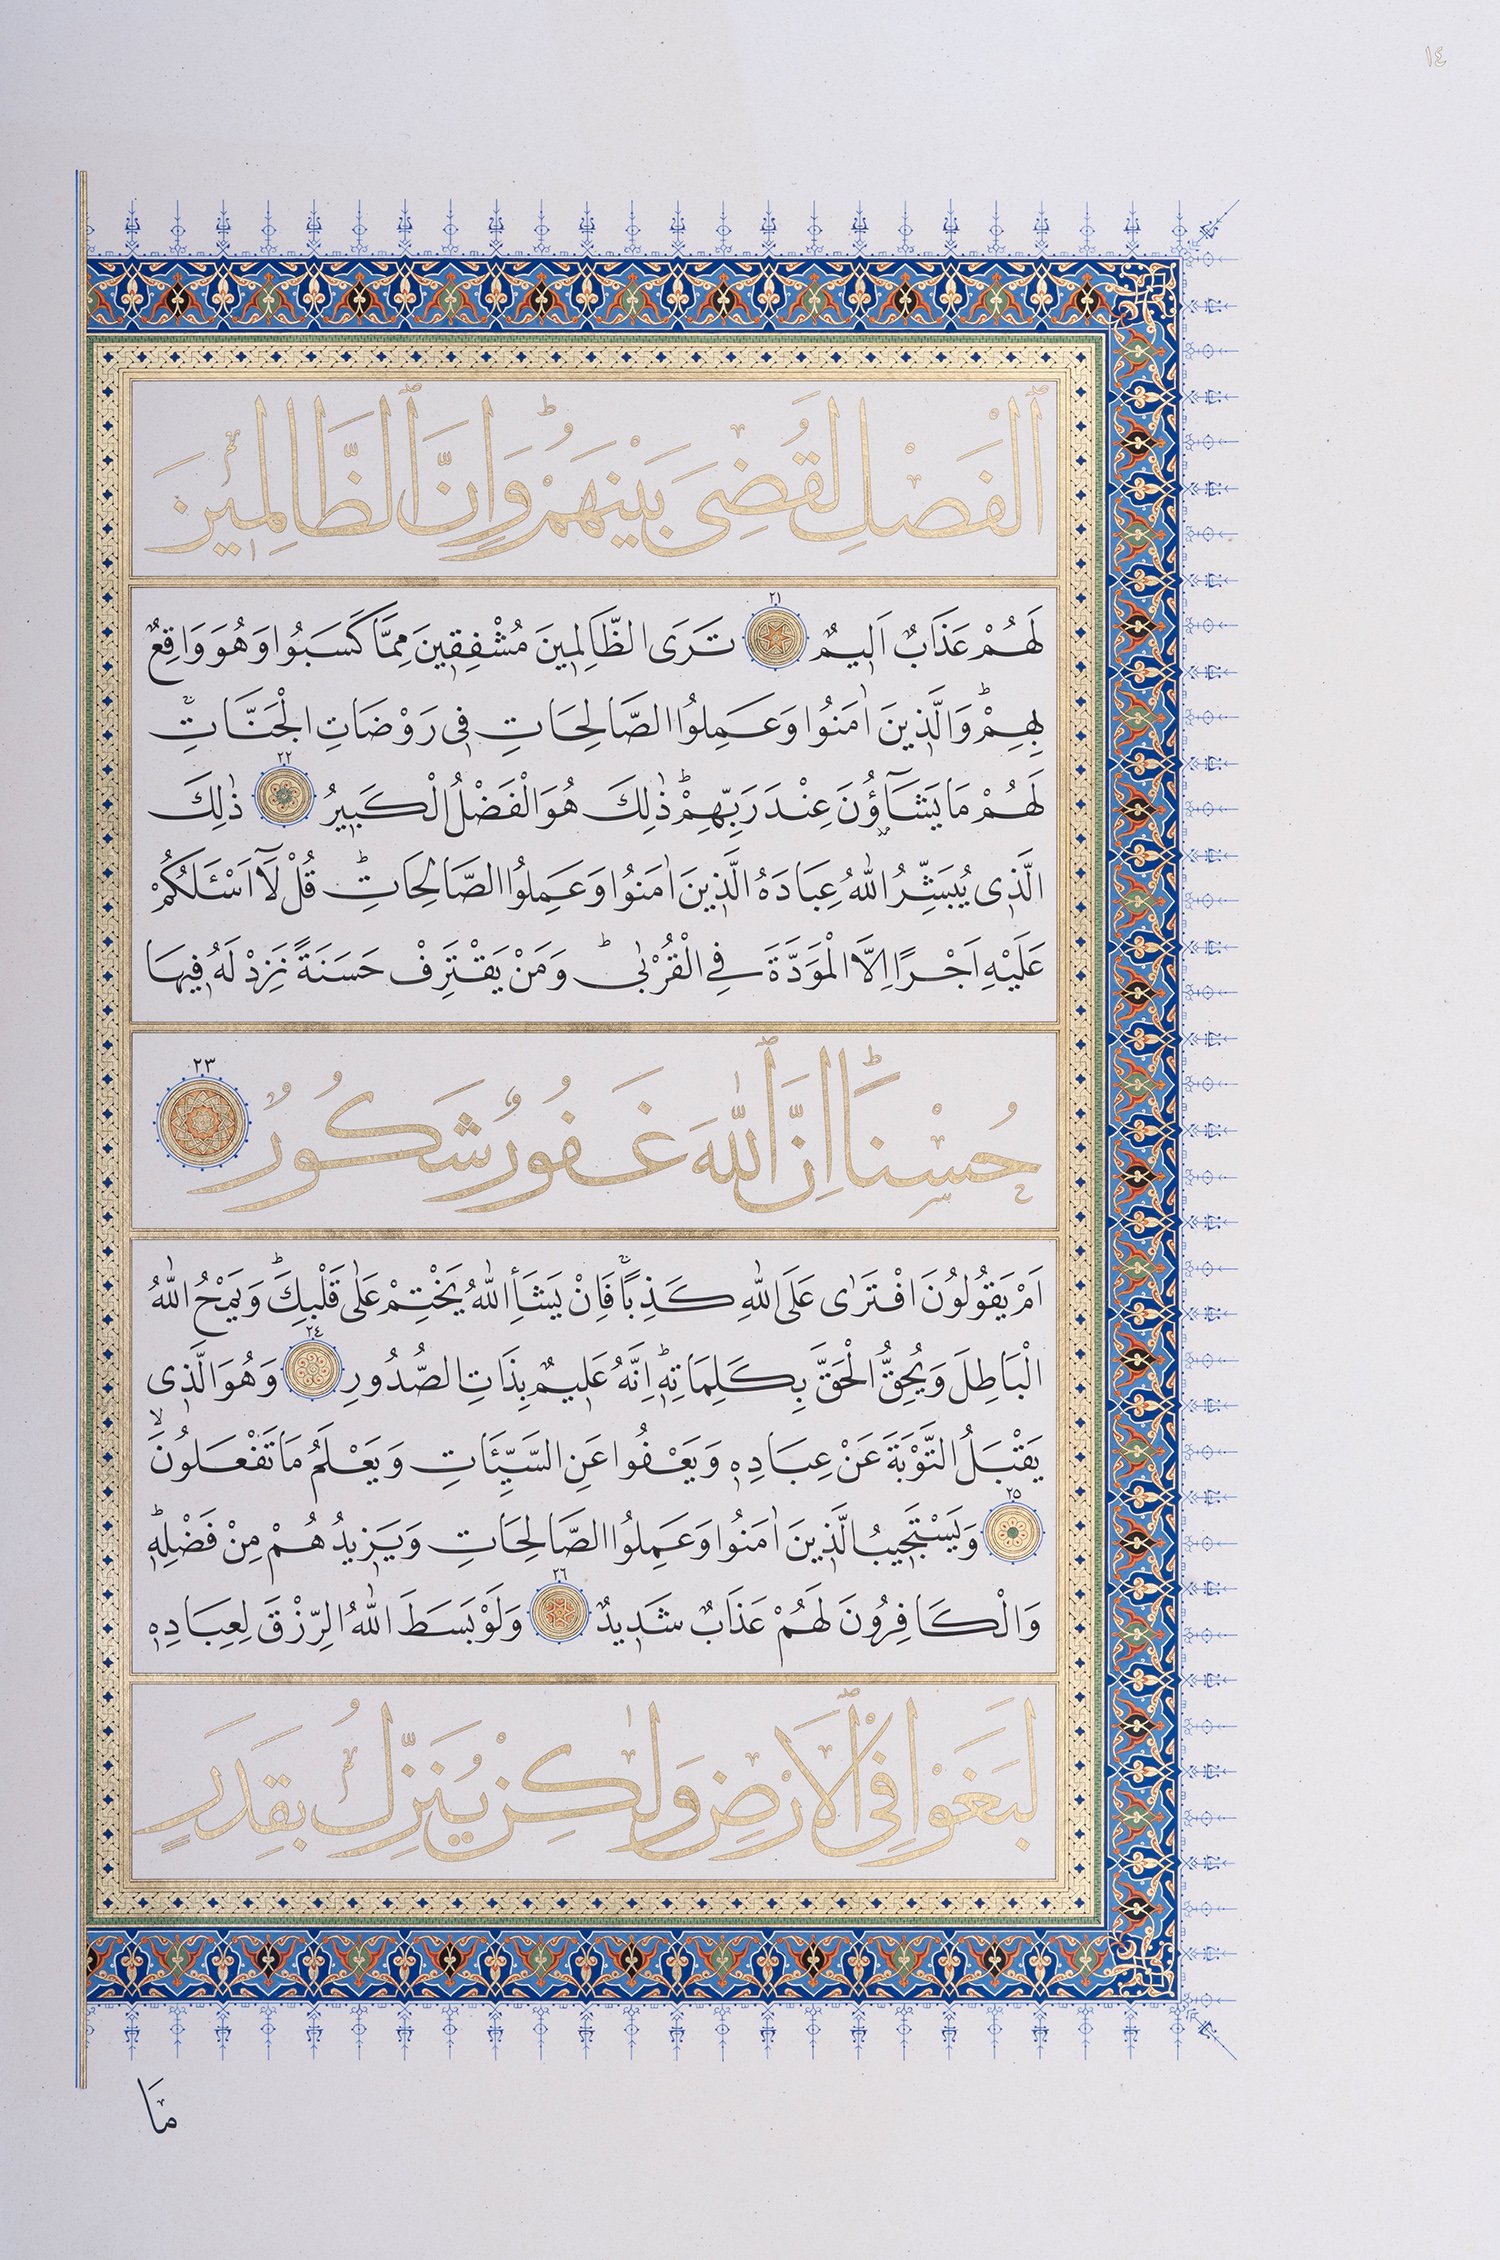 ١٤
ٱلْفَصْلِ لَقُضِيَ بَيْنَهُمْۜ وَاِنَّ ٱلظَّالِمِينَ
لَهُمْ عَذَابٌ اَلِيمٌ ٢١ تَرَى الظَّالِمِينَ مُشْفِقِينَ مِمَّا كَسَبُوا وَهُوَ وَاقِعٌ
بِهِمْۜ وَالَّذِينَ اٰمَنُوا وَعَمِلُوا الصَّالِحَاتِ فِي رَوْضَاتِ الْجَنَّاتِۚ
لَهُمْ مَا يَشَٓاؤُ۫نَ عِنْدَ رَبِّهِمْۜ ذٰلِكَ هُوَ الْفَضْلُ الْكَبِيرُ ٢٢ ذٰلِكَ
الَّذِي يُبَشِّرُ اللّٰهُ عِبَادَهُ الَّذِينَ اٰمَنُوا وَعَمِلُوا الصَّالِحَاتِۜ قُلْ لَٓا اَسْـَٔلُكُمْ
عَلَيْهِ اَجْرًا اِلَّا الْمَوَدَّةَ فِي الْقُرْبٰىۜ وَمَنْ يَقْتَرِفْ حَسَنَةً نَزِدْ لَهُ فِيهَا
حُسْنًاۜ اِنَّ ٱللّٰهَ غَفُورٌ شَكُورٌ ٢٣
اَمْ يَقُولُونَ افْتَرٰى عَلَى اللّٰهِ كَذِبًاۚ فَاِنْ يَشَأِ اللّٰهُ يَخْتِمْ عَلٰى قَلْبِكَۜ وَيَمْحُ اللّٰهُ
الْبَاطِلَ وَيُحِقُّ الْحَقَّ بِكَلِمَاتِهِۜ اِنَّهُ عَلِيمٌ بِذَاتِ الصُّدُورِ ٢٤ وَهُوَ الَّذِي
يَقْبَلُ التَّوْبَةَ عَنْ عِبَادِهِ وَيَعْفُوا عَنِ السَّيِّئَاتِ وَيَعْلَمُ مَا تَفْعَلُونَۙ
٢٥ وَيَسْتَجِيبُ الَّذِينَ اٰمَنُوا وَعَمِلُوا الصَّالِحَاتِ وَيَزِيدُهُمْ مِنْ فَضْلِهِۜ
وَالْكَافِرُونَ لَهُمْ عَذَابٌ شَدِيدٌ ٢٦ وَلَوْ بَسَطَ اللّٰهُ الرِّزْقَ لِعِبَادِهِ
لَبَغَوْا فِي ٱلْاَرْضِ وَلٰكِنْ يُنَزِّلُ بِقَدَرٍ
مَا